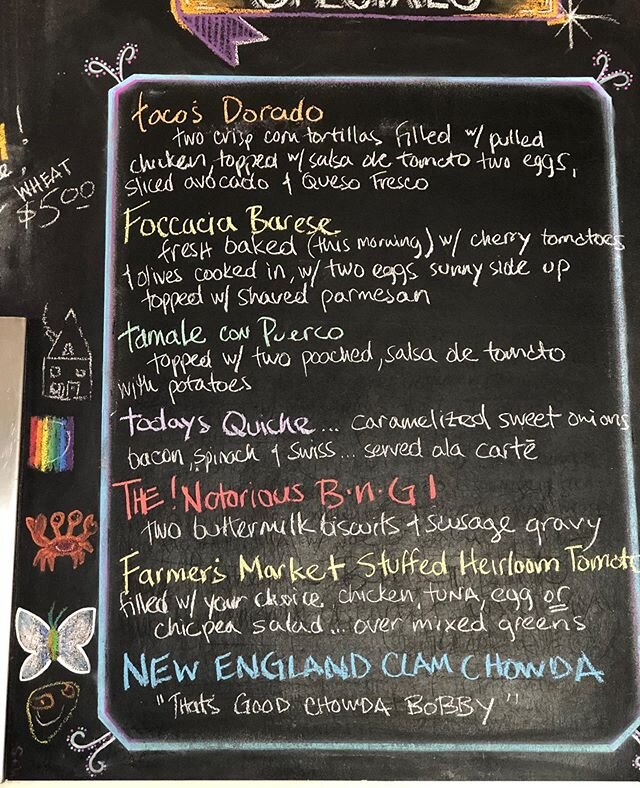 SPECIALS
WHEAT
$5.00
tacos Dorado
two crisp corn tortillas filled w/ pulled
chicken, topped w/ salsa de tomato two eggs,
sliced avocado & Queso Fresco
Foccacia Barese
fresh baked (this morning) w/ cherry tomatoes
& olives cooked in, w/ two eggs sunny side up
topped w/ shaved parmesan
tamale con Puerco
topped w/ two pooched, salsa de tomato
with potatoes
todays Quiche... caramelized sweet onions
bacon, spinach & swiss... served ala carté
THE! Notorious B.n.G!
two buttermilk biscuits & sausage gravy
Farmer's Market Stuffed Heirloom Tomato
filled w/ your choice, chicken, tuna, egg or
chicpea salad... over mixed greens
NEW ENGLAND CLAM CHOWDA
"Thats GOOD CHOWDA BOBBY"